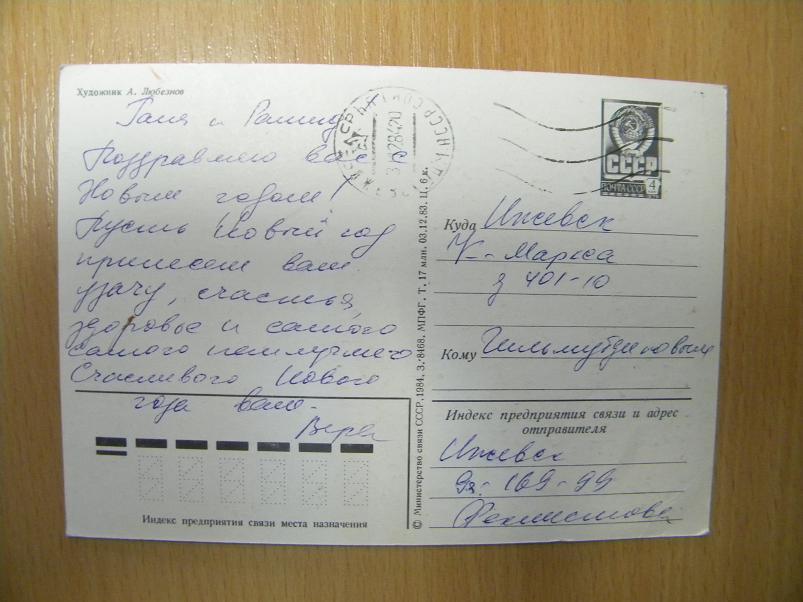 Художник А. Любезнов
Таня и Рашид
Поздравляю вас с
Новым годом!
Пусть Новый год
принесет вам
удачу, счастья,
здоровье и самого
самого наилучшего
Счасливого Нового
года вам.
Вера
Индекс предприятия связи места назначения
© Министерство связи СССР, 1984. З. 8468. МПФГ. Т. 17 млн. 03.12.83. Ц. 6 к.
СССР
ПОЧТА СССР 4
Куда Ижевск
К-Маркса
401-10
Кому Гильмутдиновым
Индекс предприятия связи и адрес
отправителя
Ижевск
169-99